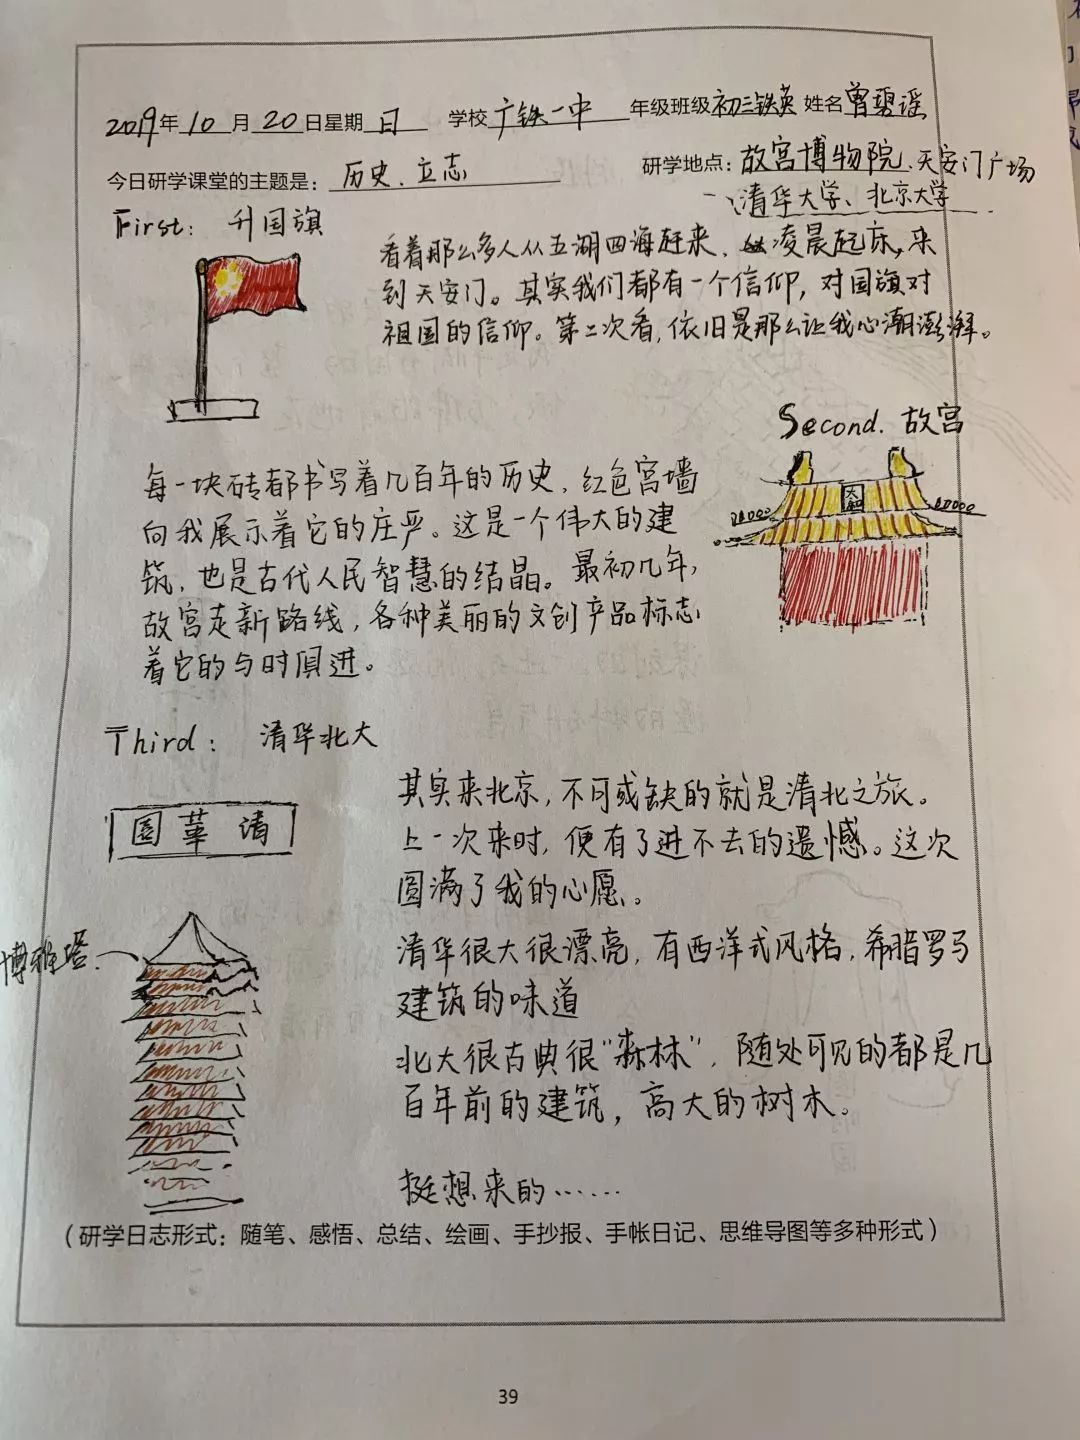 2019年10月20日星期日 学校广铁一中 年级班级初三铁英 姓名曾碧谣
今日研学课堂的主题是：历史、立志 研学地点：故宫博物院、天安门广场
、清华大学、北京大学
First： 升国旗
看着那么多人从五湖四海赶来，凌晨起床，来
到天安门。其实我们都有一个信仰，对国旗对
祖国的信仰。第二次看，依旧是那么让我心潮澎湃。
Second. 故宫
太和
每一块砖都书写着几百年的历史，红色宫墙
向我展示着它的庄严。这是一个伟大的建
筑，也是古代人民智慧的结晶。最初几年，
故宫走新路线，各种美丽的文创产品标志
着它的与时俱进。
Third： 清华北大
園華清
其实来北京，不可或缺的就是清北之旅。
上一次来时，便有了进不去的遗憾。这次
圆满了我的心愿。
博雅塔
清华很大很漂亮，有西洋式风格，希腊罗马
建筑的味道
北大很古典很“森林”，随处可见的都是几
百年前的建筑，高大的树木。
挺想来的……
（研学日志形式：随笔、感悟、总结、绘画、手抄报、手帐日记、思维导图等多种形式）
39